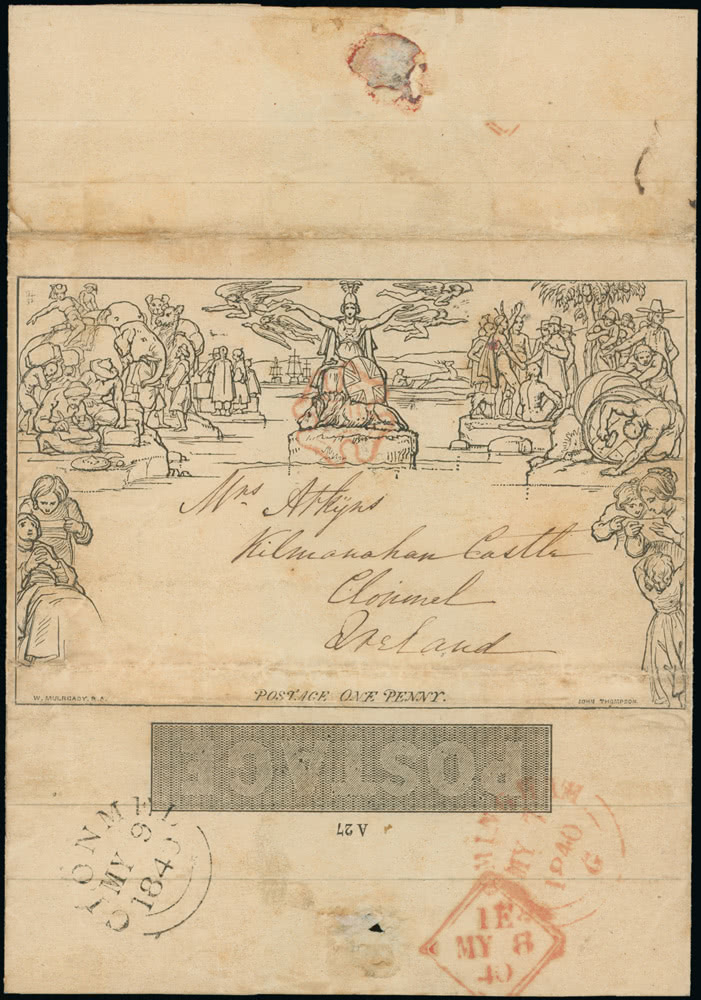 Mrs Atkyns
Kilmanahan Castle
Clonmel
Ireland
W. MULREADY, R.A.
POSTAGE ONE PENNY.
JOHN THOMPSON
POSTAGE
A 27
CLONMEL
MY 9
1840
MY 7
1840
G
1E
MY 8
40